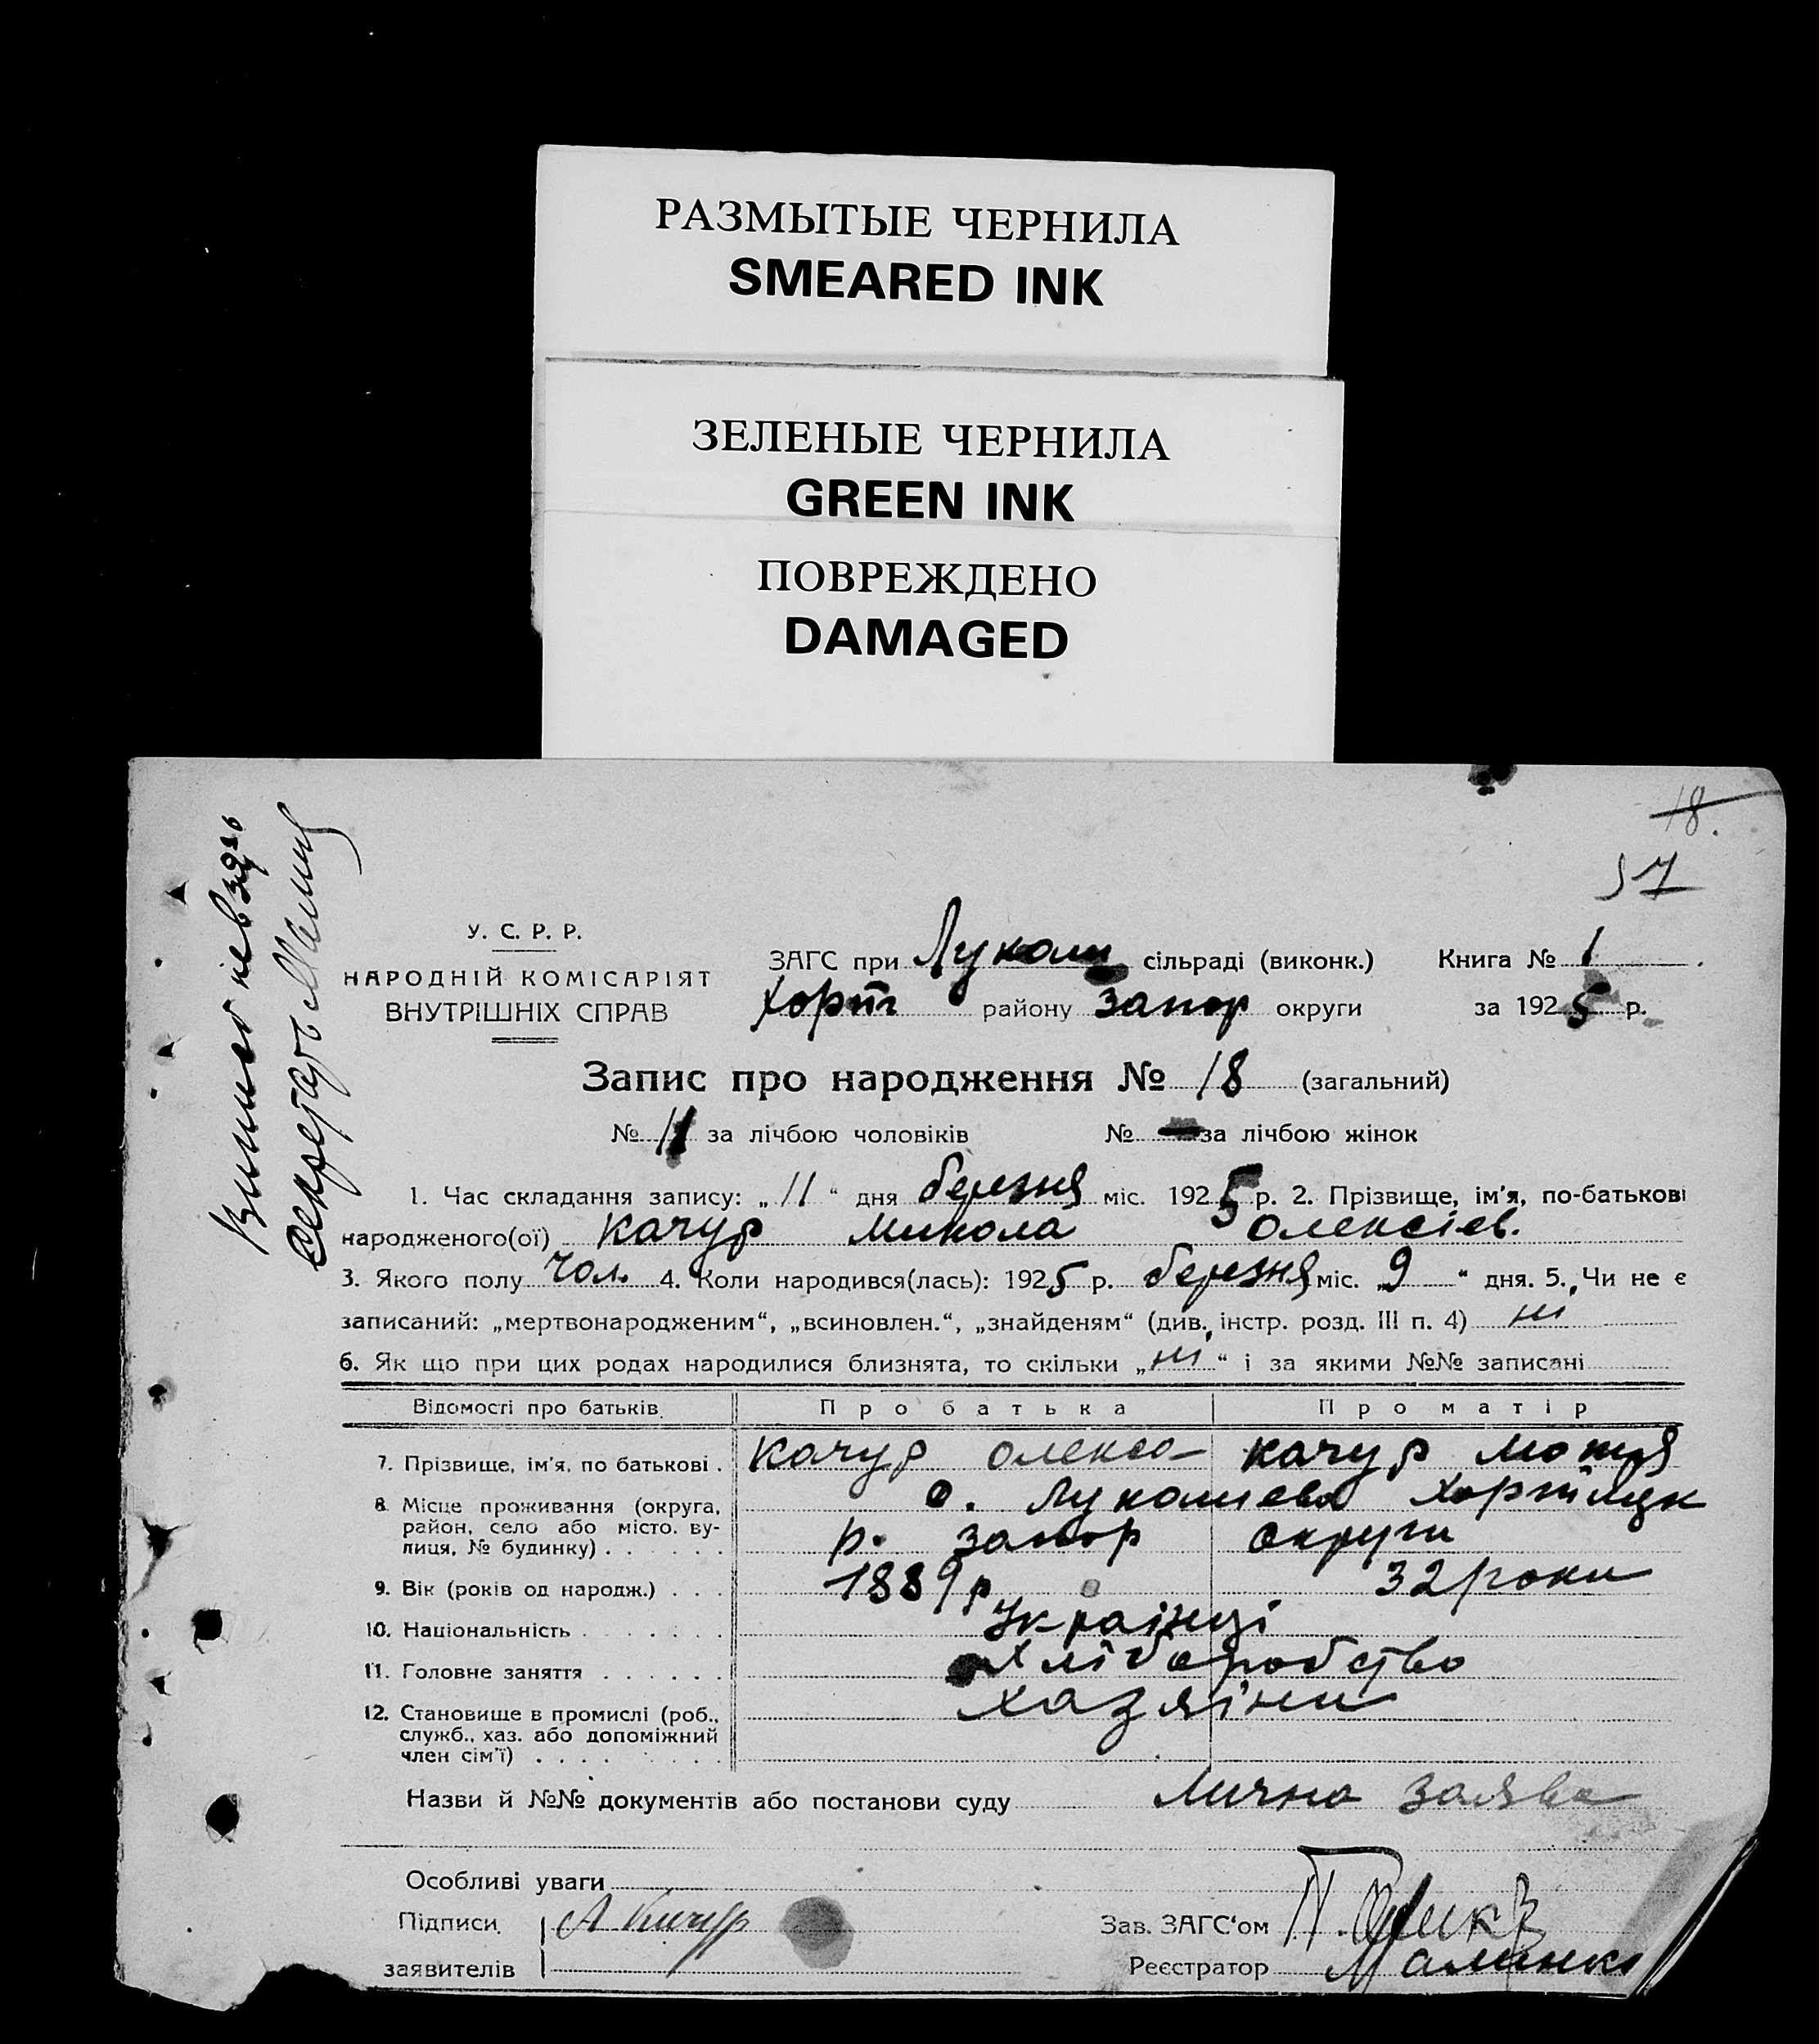 РАЗМЫТЫЕ ЧЕРНИЛА
SMEARED INK
ЗЕЛЕНЫЕ ЧЕРНИЛА
GREEN INK
ПОВРЕЖДЕНО
DAMAGED
18.
У. С. Р. Р.
НАРОДНІЙ КОМІСАРІЯТ
ВНУТРІШНІХ СПРАВ
ЗАГС при Лукаш сільраді (виконк.) Книга № 1
Хорт району Запор округи за 1925 р.
Запис про народження № 18 (загальний)
№ 11 за лічбою чоловіків № — за лічбою жінок
1. Час складання запису: „11“ дня березня міс. 1925 р. 2. Прізвище, ім'я, по-батькові
народженого(ої) Качур Микола Олексієв.
3. Якого полу Чол. 4. Коли народився(лась): 1925 р. березня міс. „9“ дня. 5. Чи не є
записаний: „мертвонародженим“, „всиновлен.“, „знайденям“ (див. інстр. розд. III п. 4) ні
6. Як що при цих родах народилися близнята, то скільки „ні“ і за якими №№ записані
Відомості про батьків Про батька Про матір
7. Прізвище, ім'я, по батькові . Качур Олекса Качур Мотря
8. Місце проживання (округа, с. Лукашева Хортицьк
район, село або місто, ву-
лиця, № будинку) . . . . . . р. Запор округи
9. Вік (років од народж.) . . . 1889 р 32 роки
10. Національність . . . . . . . Українці
11. Головне заняття . . . . . . Хліборобство
12. Становище в промислі (роб., Хазяїни
служб., хаз. або допоміжний
член сім'ї) . . . . . . . . .
Назви й №№ документів або постанови суду Лична заява
Особливі уваги
Підписи А Качур Зав. ЗАГС'ом
заявителів Реєстратор
Секретарь